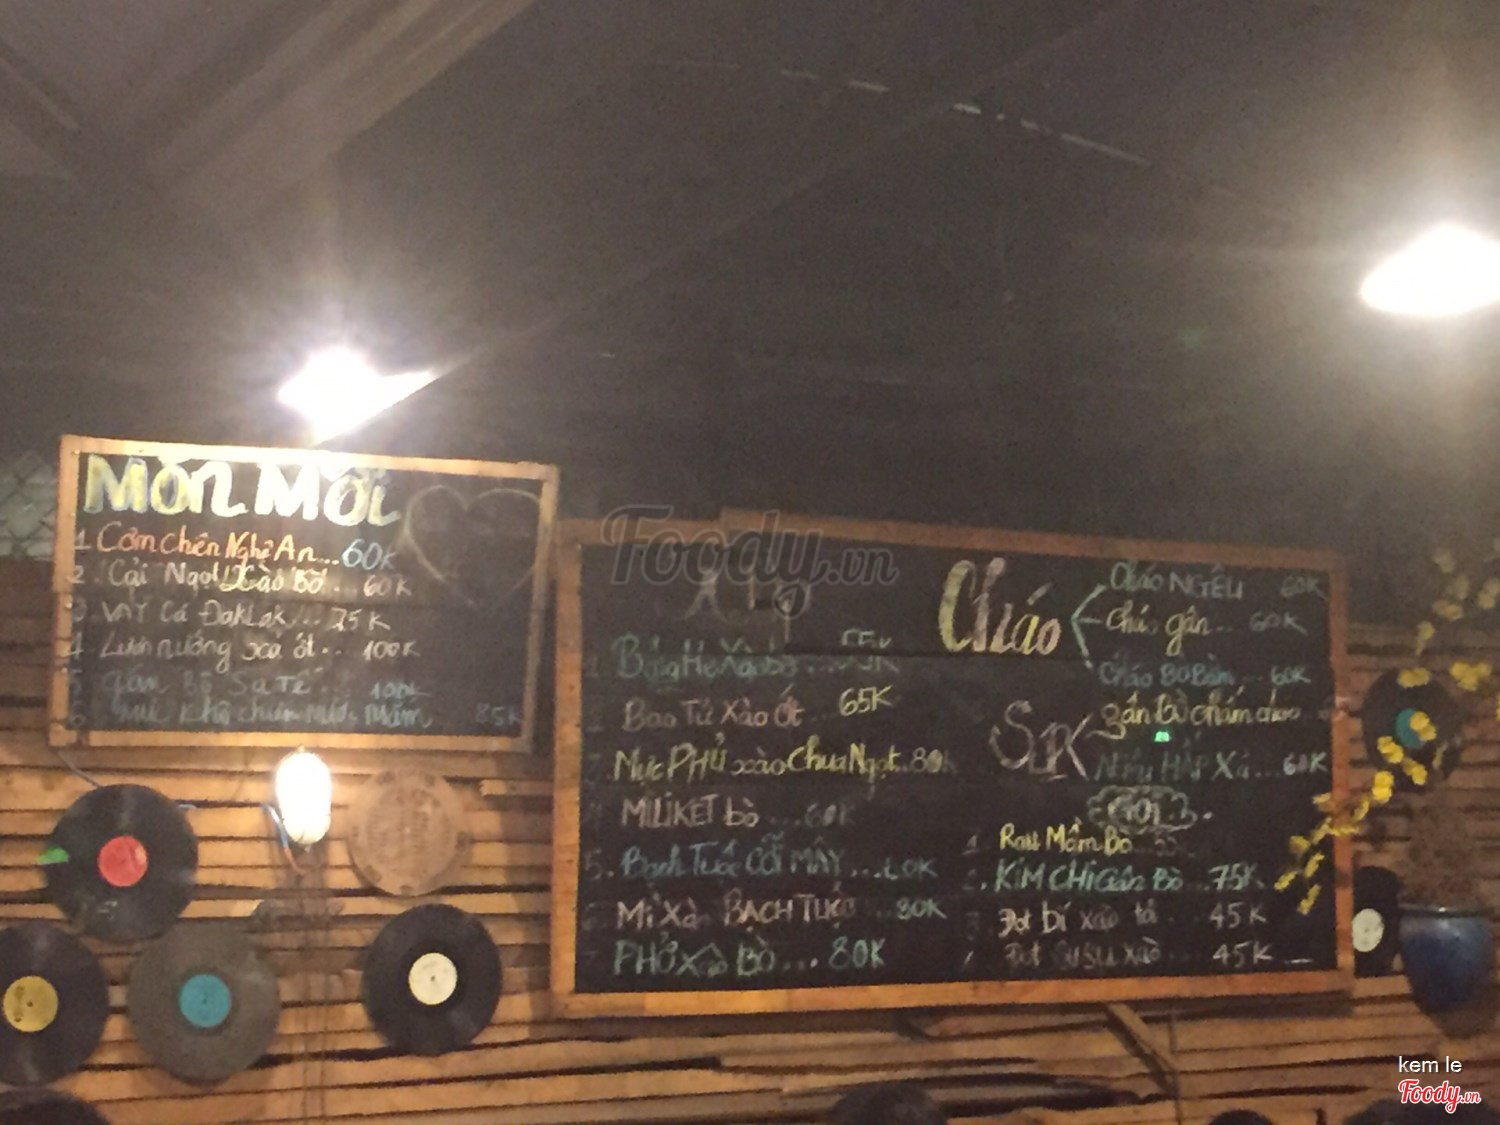 Món Mới
1. Cơm chiên Nghệ An... 60K
2. Cải Ngọt Xào Bò... 60K
3. VAY Cá ĐakLak... 75K
4. Lươn nướng xả ớt... 100K
5. gân Bò Sa Tế... 100K
6. Mực Khô chiên nước Mắm 85K
Foody.vn
55K
Bao Tử Xào Ớt... 65K
Mực PHỦ xào Chua Ngọt.. 80K
MILIKET bò ... 60K
5. Bạch Tuộc CỐI MÂY...
Mì Xào BẠCH TUỘC ... 80K
PHỞ xào BÒ... 80K
Cháo
Cháo NGÊU 60K
cháo gân... 60K
Cháo Bò Bằm... 60K
gân bò chấm chao
HẤP Xả... 60K
GỎI
1. Rau Mầm Bò..
2. KIM CHI Gân Bò... 75K
3 Đọt bí xào tỏi.. 45K
Đọt SUSU xào... 45K
kem le
Foody.vn